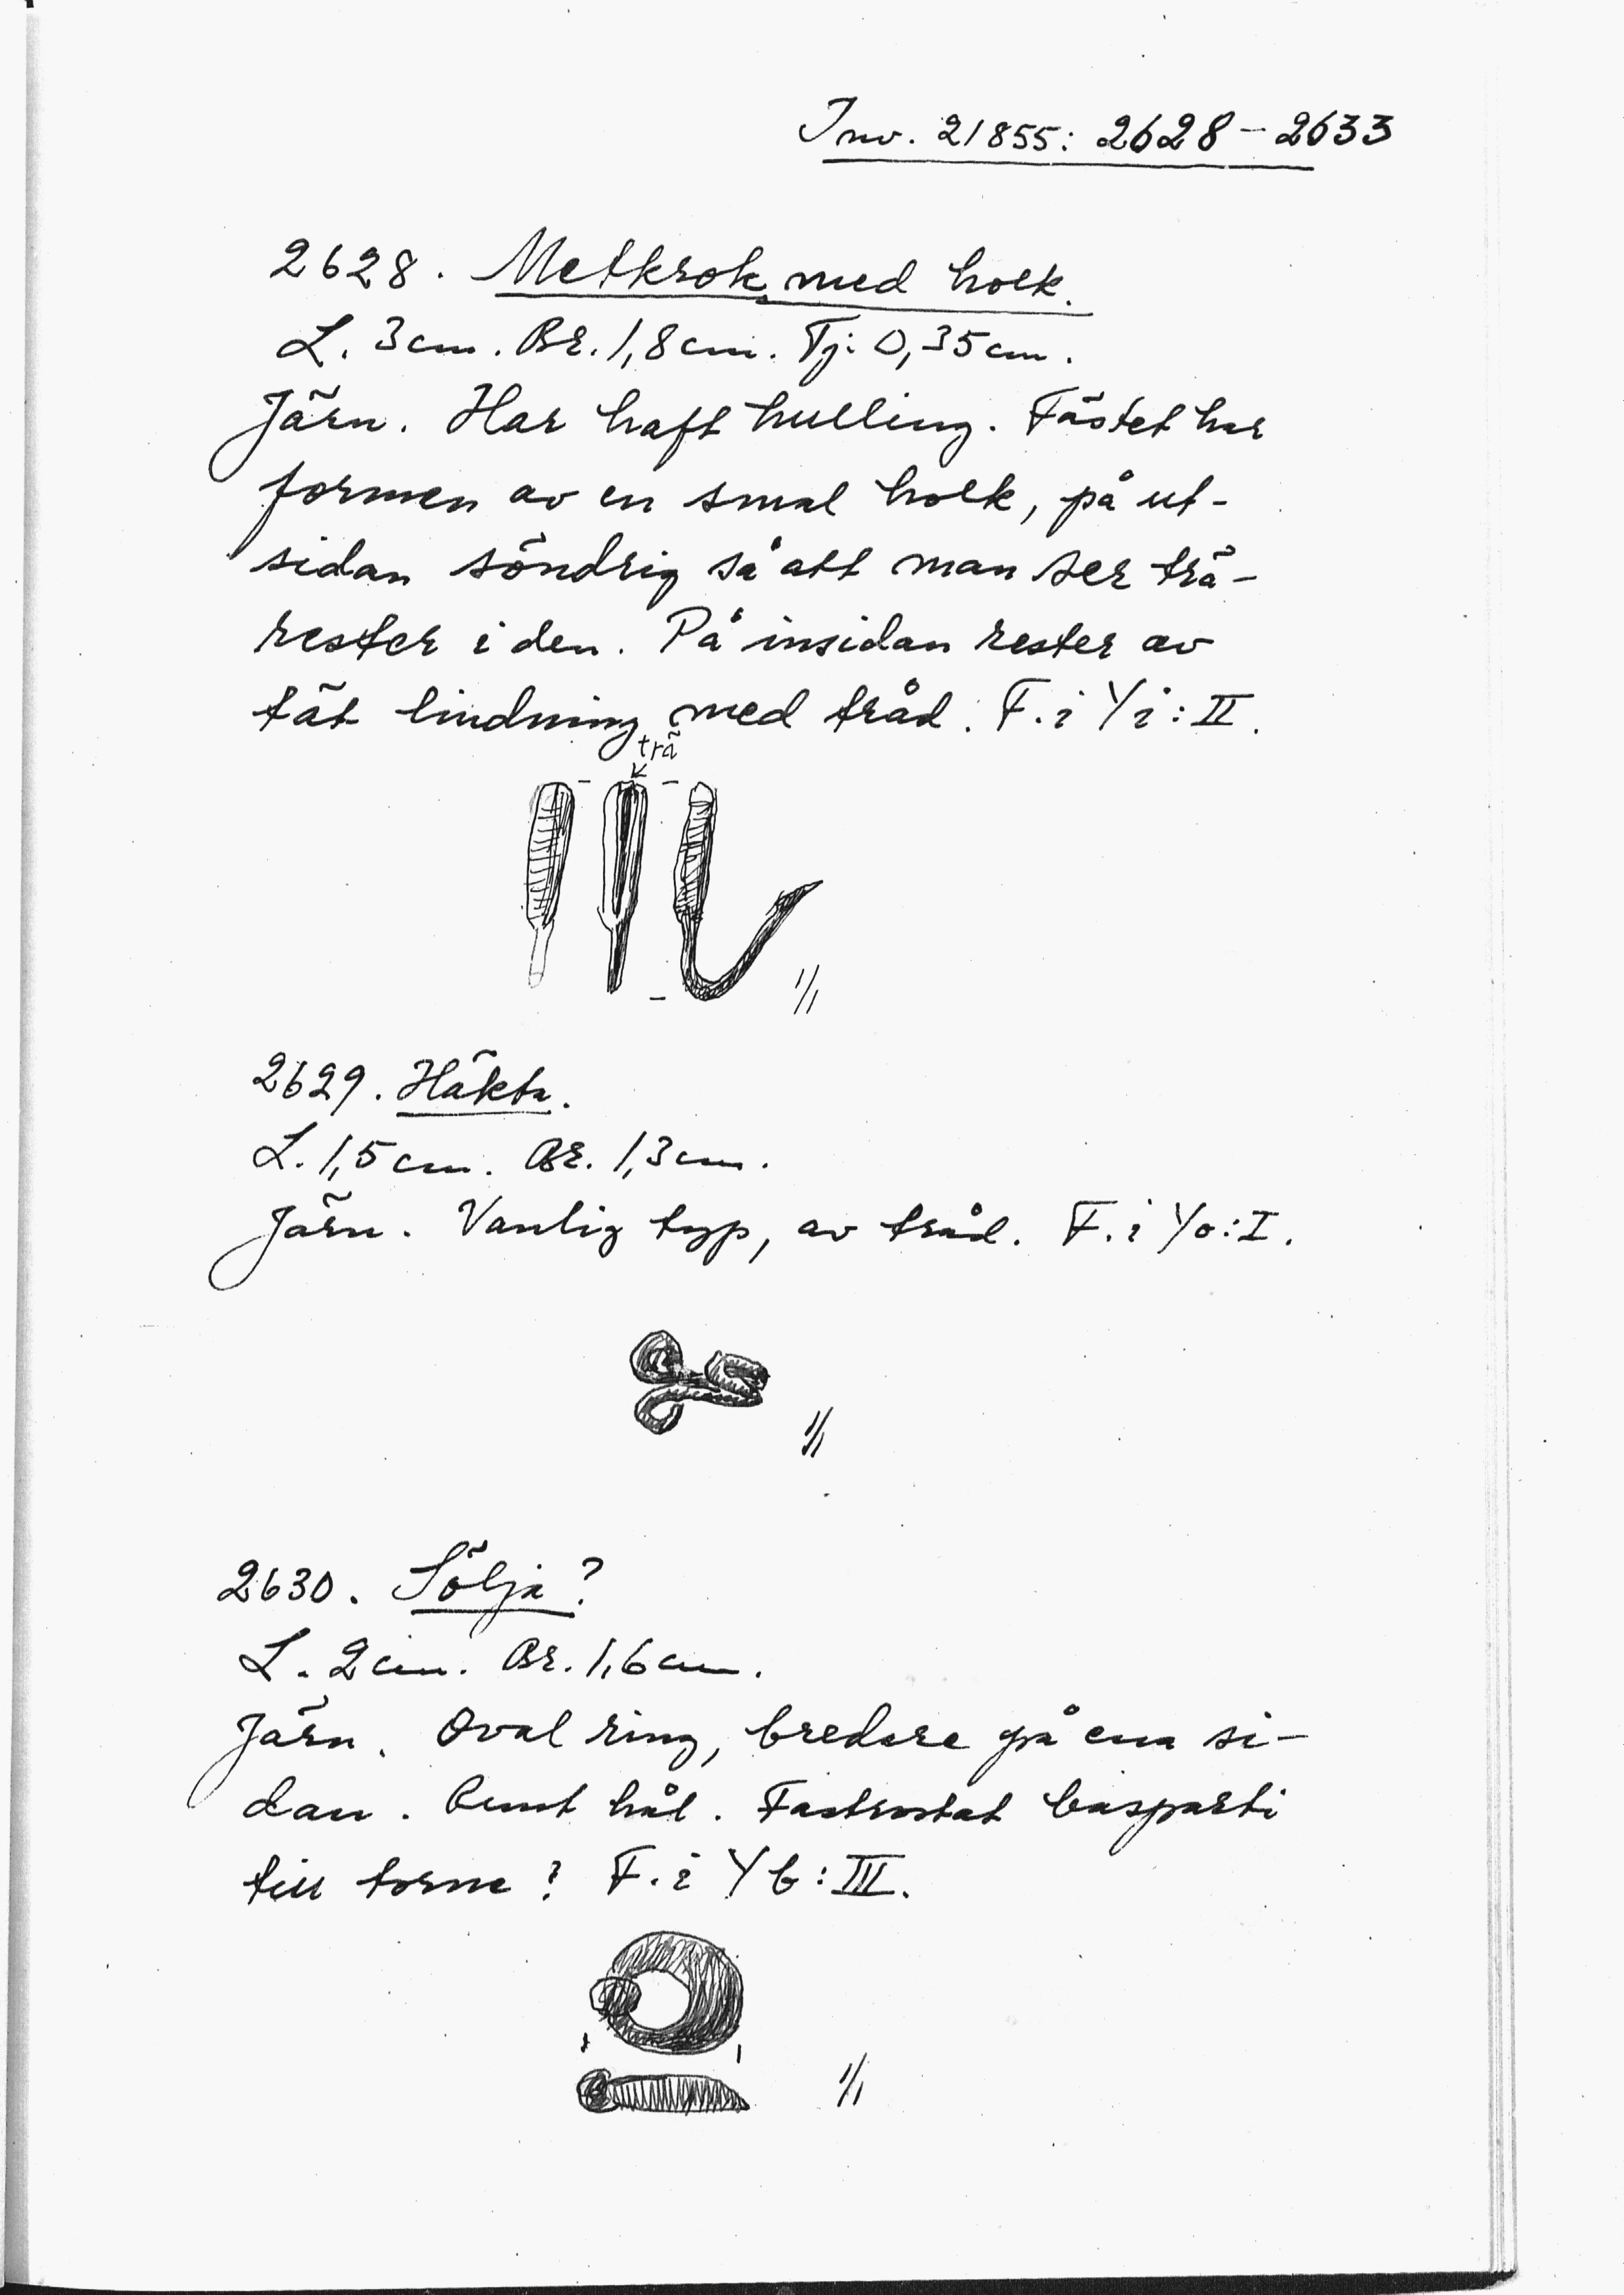 Inv. 21855: 2628-2633
2628. Metkrok med holk.
L. 3cm. Br. 1,8cm. Tj: 0,35cm.
Järn. Har haft hulling. Fästet har
formen av en smal holk, på ut-
sidan söndrig så att man ser trä-
rester i den. På insidan rester av
tät lindning med tråd. F. i Yi:II.
trä
1/1
2629. Häkta.
L. 1,5cm. Br. 1,3cm.
Järn. Vanlig typ, av tråd. F. i Yo:I.
1/1
2630. Sölja?
L. 2cm. Br. 1,6cm.
Järn. Oval ring, bredare på ena si-
dan. Runt hål. Fastrostat basparti
till torne? F. i Yb:III.
1/1